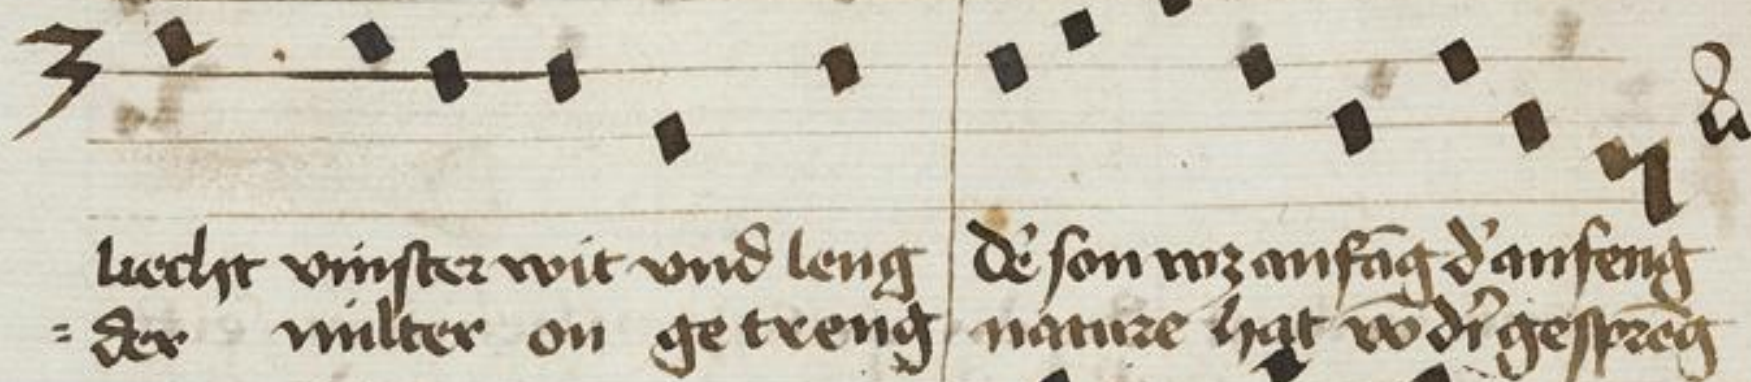 liecht vinster wit vnd leng de͛ son wz anfāg d͛ anfeng
= der milter on getreng nature hat vō dir gesprēg